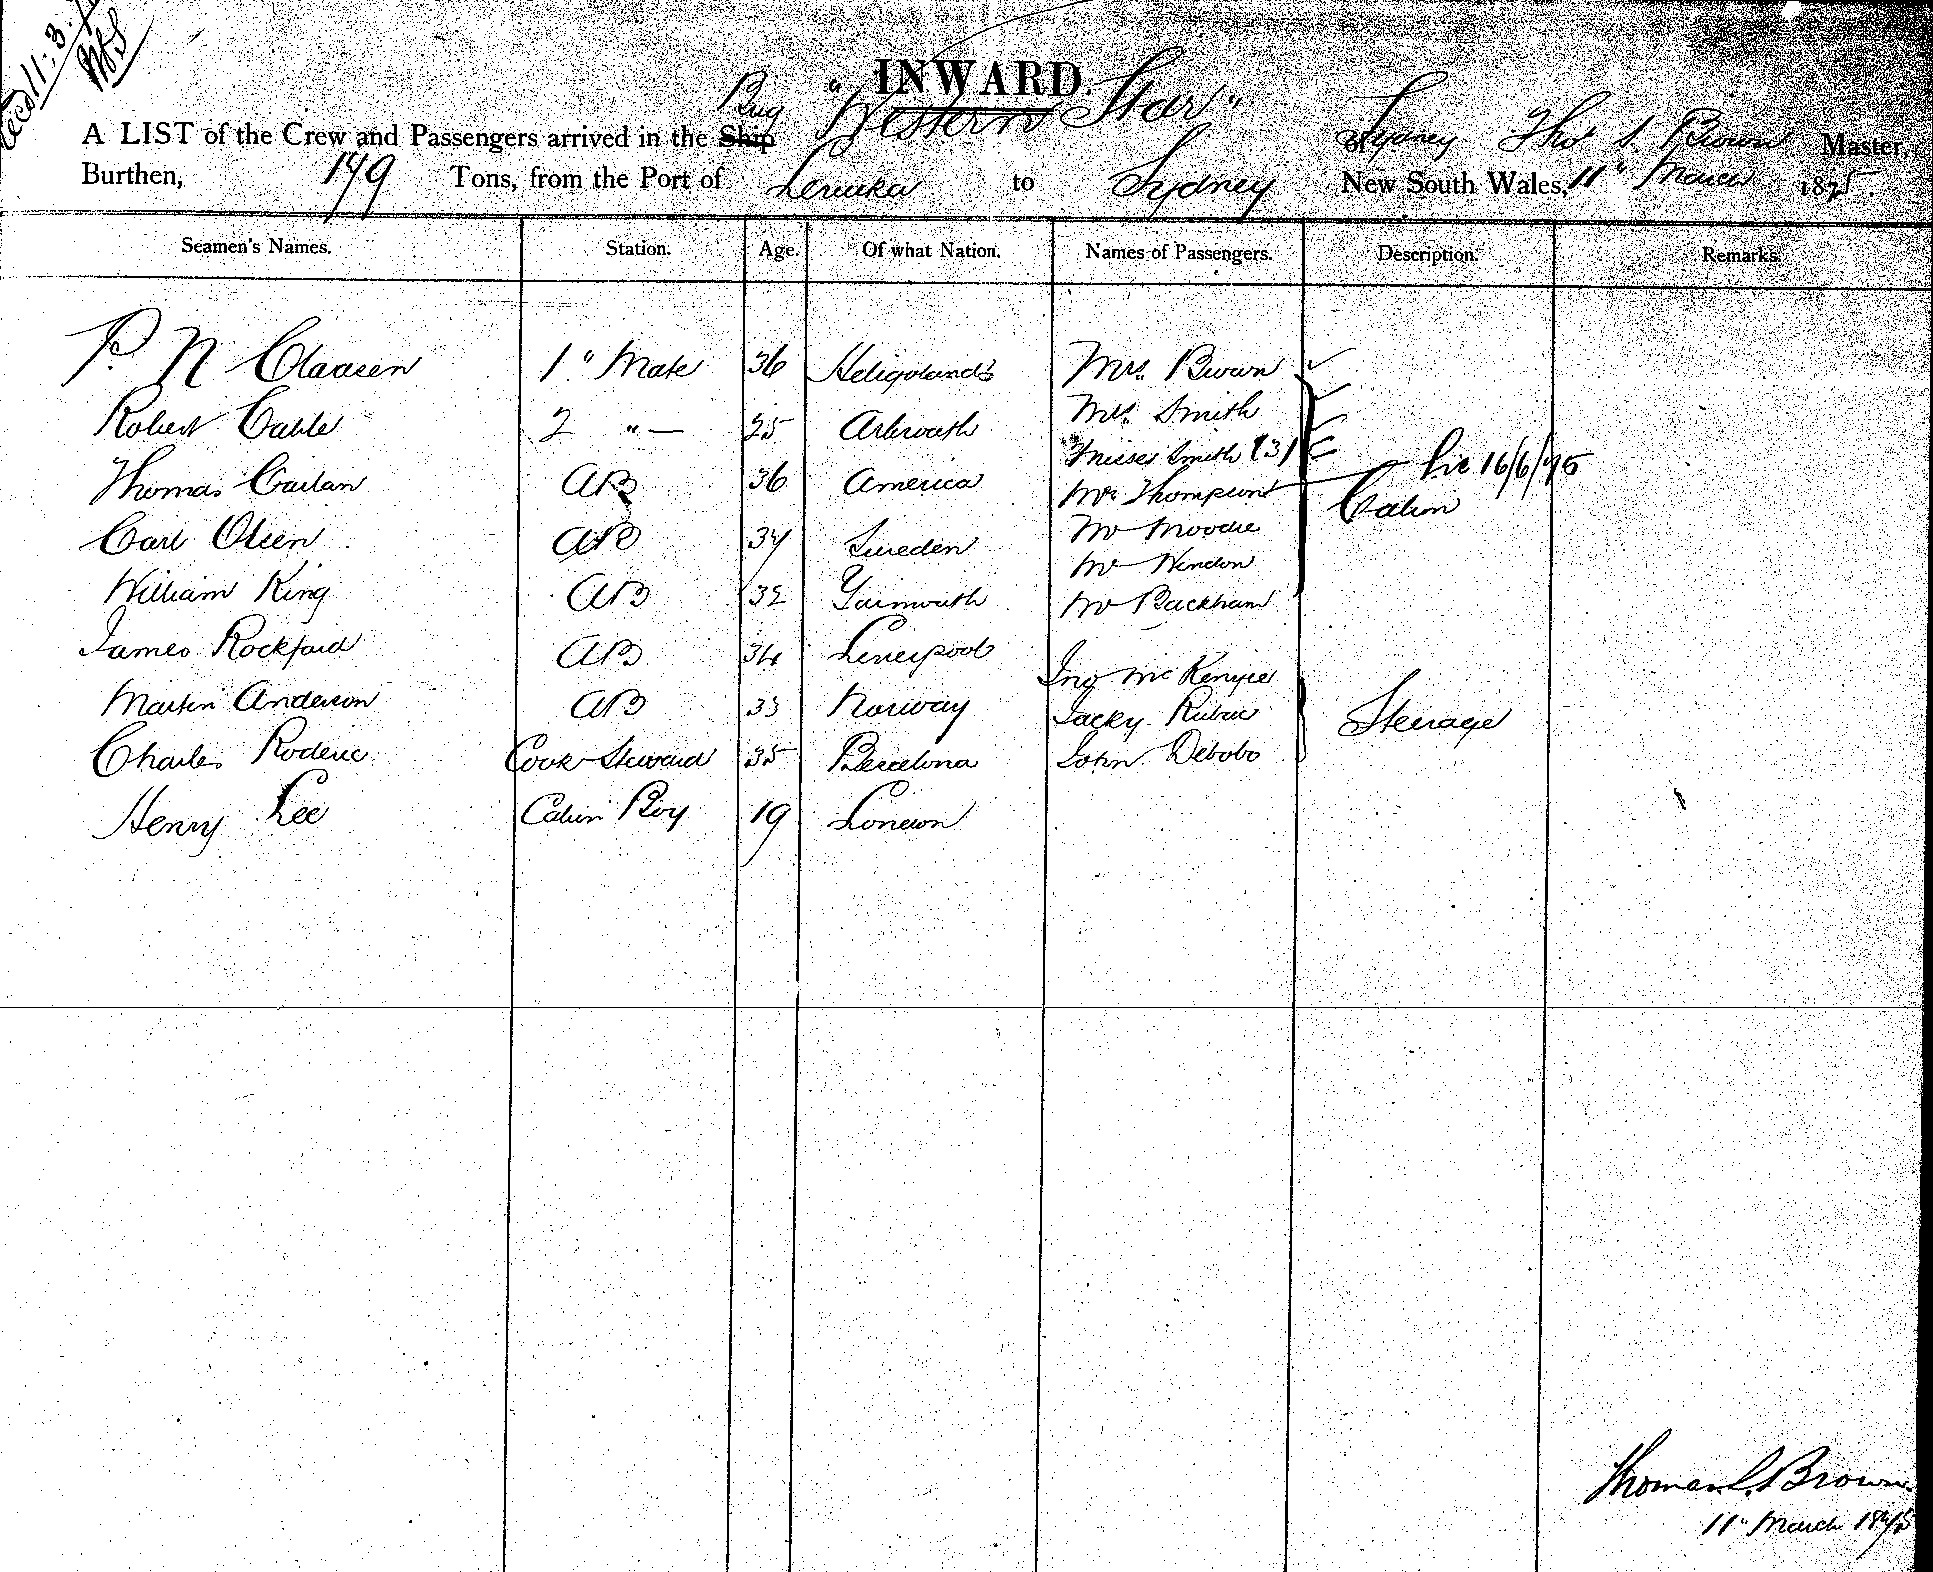 Recd 11.3.
INWARD.
Brig "Western Star"
A LIST of the Crew and Passengers arrived in the Ship of Sydney Thos S. Brown Master,
Burthen, 179 Tons, from the Port of Levuka to Sydney New South Wales, 11" March 1875.
Seamen's Names. Station. Age. Of what Nation. Names of Passengers. Description. Remarks.
P. N Claasen 1" Mate 36 Heligoland Mrs. Brown
Robert Cable 2 " — 25 Arbroath Mrs. Smith
Misses Smith (3)
Thomas Carlan AB 36 America Mr Thompson 16/6/75
Cabin
Carl Olsen AB 34 Sweden Mr Moodie
Mr Windon
William King AB 32 Yarmouth Mr Packham
James Rockford AB 34 Liverpool
Jno McKenzie
Martin Anderson AB 33 Norway Jacky Steerage
Charles Roderic Cook Steward 35 Barcelona John Debobo
Henry Lee Cabin Boy 19 London
Thomas S. Brown
11" March 1875